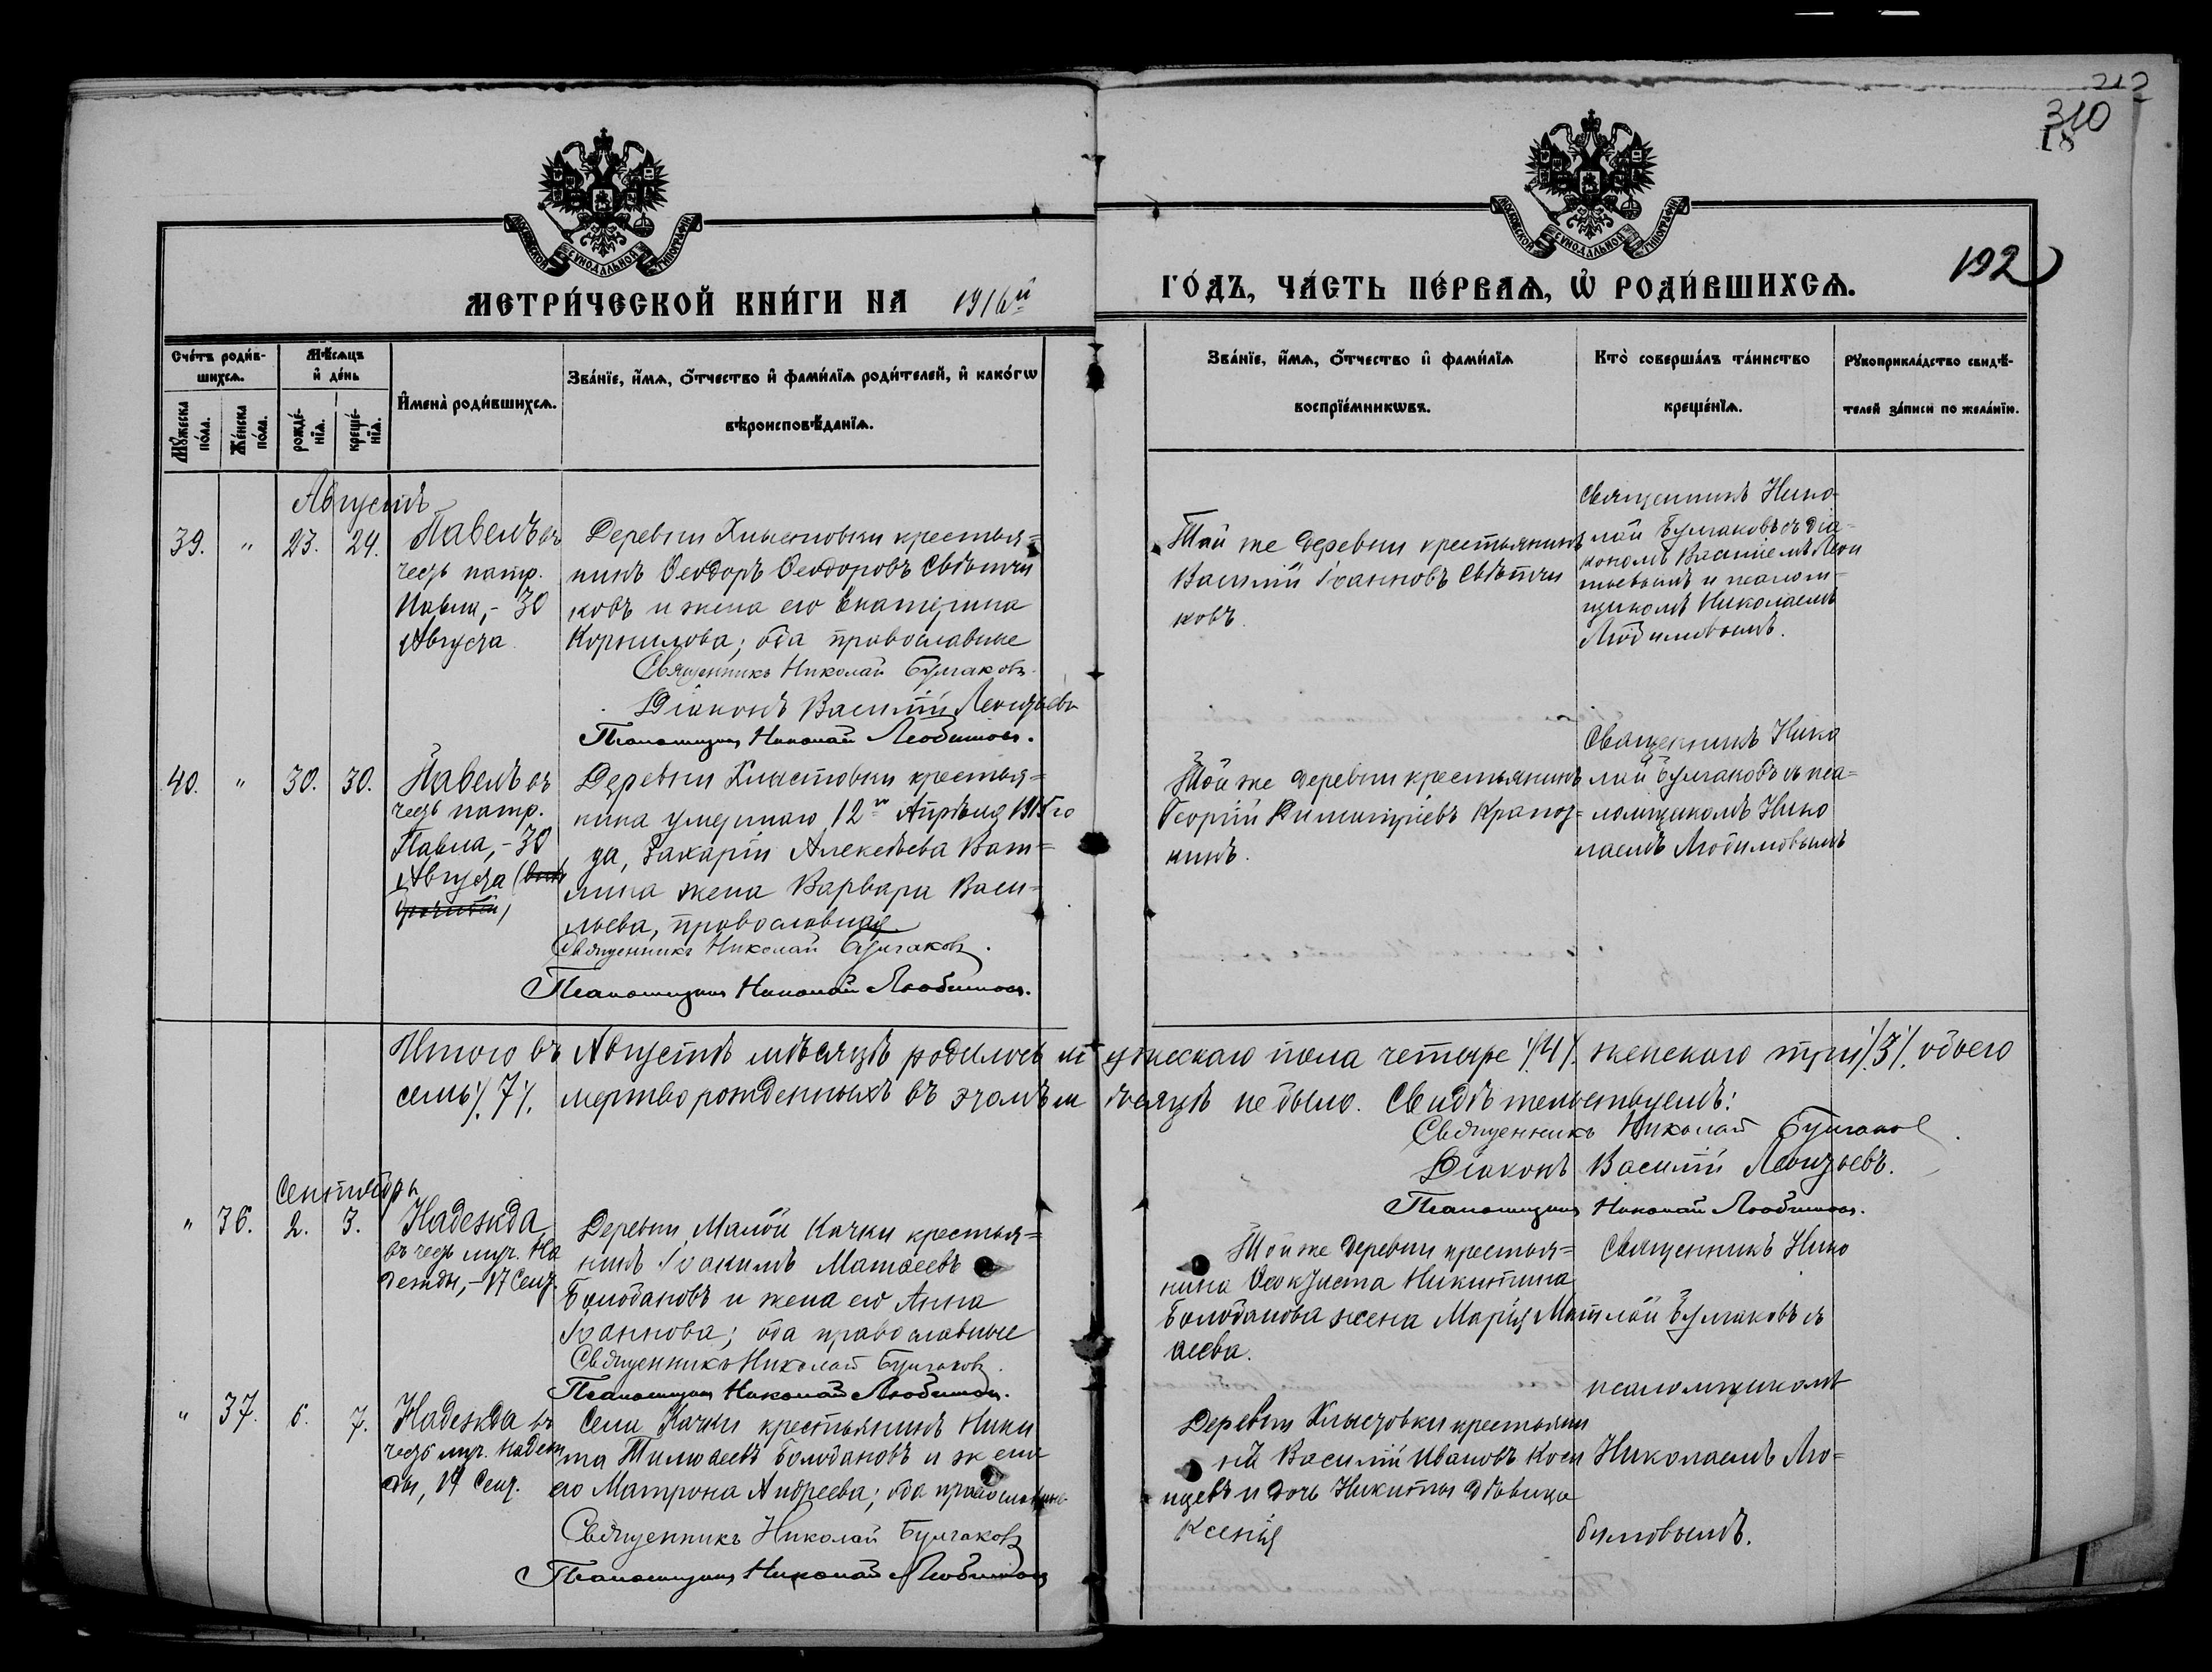 212
310
18
МОСКОВСКОЙ СУНОДАЛЬНОЙ ТИПОГРАФІИ
МОСКОВСКОЙ СУНОДАЛЬНОЙ ТИПОГРАФІИ
МЕТРИ́ЧЕСКОЙ КНИ́ГИ НА 1916й
ГО́ДЪ, ЧА́СТЬ ПЕ́РВАѦ, Ѡ҆ РОДИ́ВШИХСѦ.
192
Сче́тъ роди́в-
шихсѧ.
Мꙋ́жеска по́ла.
Же́нска по́ла.
Мѣ́сѧцъ
и҆ де́нь
рожде́-
нїѧ.
креще́-
нїѧ.
И҆мена̀ роди́вшихсѧ.
Зва́нїе, и҆́мѧ, ѻ҆́тчество и҆ фами́лїѧ роди́телей, и҆ како́гѡ
вѣроисповѣ́данїѧ.
Зва́нїе, и҆́мѧ, ѻ҆́тчество и҆ фами́лїѧ
воспрїе́мникѡвъ.
Кто̀ соверша́лъ та́инство
креще́нїѧ.
Рꙋкоприкла́дство свидѣ́-
телей за́писи по жела́нїю.
Августъ
39. " 23. 24.
Павелъ въ
честь патр.
Павла,- 30
Августа
Деревни Хлыстовки крестья=
нинъ Ѳеодоръ Ѳеодоровъ Свѣтли
ковъ и жена его Екатерина
Корнилова; оба православные
Священникъ Николай Булгаковъ.
Діаконъ Василій Леонтьевъ
Псаломщикъ Николай Любимовъ.
Той же деревни крестьянинъ
Василій Іоанновъ Свѣтли
ковъ.
Священникъ Нико
лай Булгаковъ съ діа=
кономъ Василіемъ Леон
тьевымъ и псалом=
щикомъ Николаемъ
Любимовымъ.
40. " 30. 30.
Павелъ въ
честь патр.
Павла,- 30
Августа
Деревни Хлыстовки крестья=
нина умершаго 12го Апрѣля 1915 го
да, Захарія Алексѣева Ват=
лина жена Варвара Васи=
льева, православная
Священникъ Николай Булгаковъ.
Псаломщикъ Николай Любимовъ.
Той же деревни крестьянинъ
Георгій Димитріевъ
нинъ.
Священникъ Нико
лай Булгаковъ съ пса=
ломщикомъ Нико
лаемъ Любимовымъ
Итого въ Августѣ мѣсяцѣ родилось мужескаго пола четыре /4/. женскаго три /3/. обоего
семь /7/. мертворожденныхъ въ этомъ мѣсяцѣ не было. Свидѣтельствуемъ:
Священникъ Николай Булгаковъ.
Діаконъ Василій Леонтьевъ.
Псаломщикъ Николай Любимовъ.
Сентябрь
" 36. 2. 3.
Надежда,
въ честь муч. На
дежды,- 17 Сент.
Деревни Малой Качки крестья=
нинъ Іоакимъ Матѳеевъ
Болдановъ и жена его Анна
Іоаннова; оба православные
Священникъ Николай Булгаковъ.
Псаломщикъ Николай Любимовъ.
Той же деревни крестья=
нина Ѳеоктиста Никитина
Болданова жена Марія Мат
ѳеева.
Священникъ Нико
лай Булгаковъ съ
псаломщикомъ
Николаемъ Лю=
бимовымъ.
" 37. 6. 7.
Надежда въ
честь муч. Надеж
ды, 17 Сент.
Села Качки крестьянинъ Ники
та Тимоѳеевъ Болдановъ и жена
его Матрона Андреева; оба православные
Священникъ Николай Булгаковъ
Псаломщикъ Николай Любимовъ
Деревни Хлыстовки крестьяни
нъ Василій Ивановъ Коси
цевъ и дочь Никиты дѣвица
Ксенія